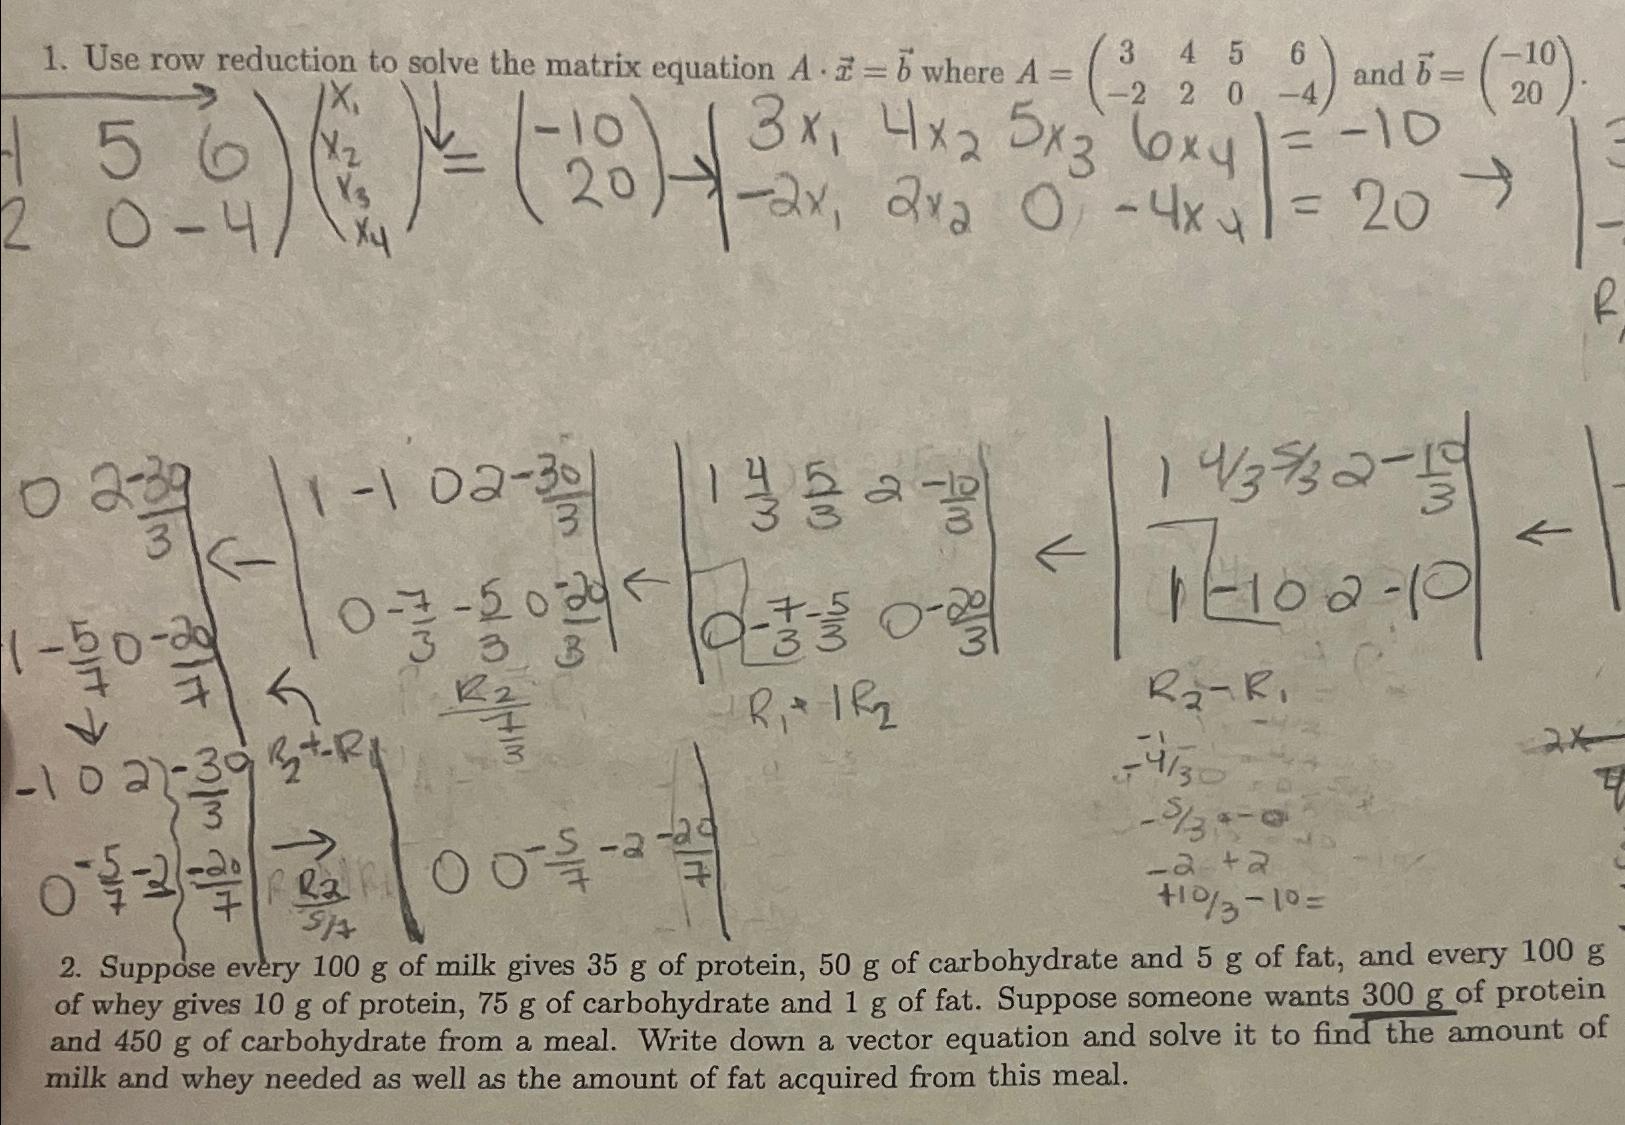 1. Use row reduction to solve the matrix equation A · x⃗ = b⃗ where A = (3 4 5 6 / -2 2 0 -4) and b⃗ = (-10 / 20).
5 6) (x₁ x₂ x₃ x₄) = (-10 / 20) → | 3x₁ 4x₂ 5x₃ 6x₄ | = -10 →
2 0 -4 | -2x₁ 2x₂ 0 -4x₄ | = 20
0 2 -30/3 | 1 -1 0 2 -30/3 | ← | 1 4/3 5/3 2 -10/3 | ← | 1 4/3 5/3 2 -10/3 | ←
1 -5/7 0 -20/7 ← | 0 -7/3 -5/3 0 -20/3 | ← | 0 -7/3 -5/3 0 -20/3 | | 1 -1 0 2 -10 |
R₂/(7/3) R₁ + 1R₂ R₂ - R₁
-1 0 2 -30/3 R₂ + -R₁
-4/3
-5/3 + -0
0 -5/7 -2 -20/7 → R₂/(5/7) | 0 0 -5/7 -2 -20/7 |
-2 + 2
+10/3 - 10 =
2. Suppose every 100 g of milk gives 35 g of protein, 50 g of carbohydrate and 5 g of fat, and every 100 g
of whey gives 10 g of protein, 75 g of carbohydrate and 1 g of fat. Suppose someone wants 300 g of protein
and 450 g of carbohydrate from a meal. Write down a vector equation and solve it to find the amount of
milk and whey needed as well as the amount of fat acquired from this meal.